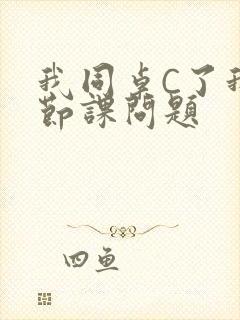 我同桌C了我
節課問題
四魚